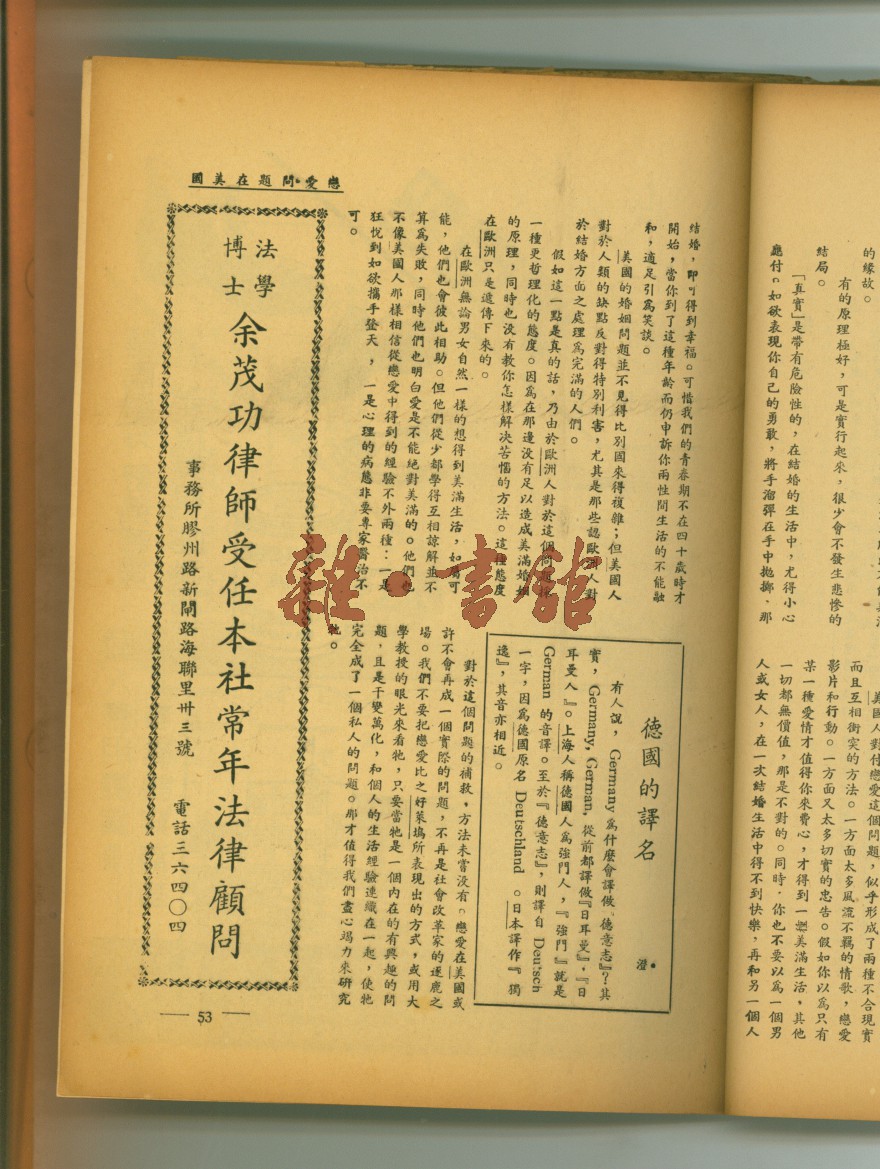 的緣故。
有的原理極好，可是實行起來，很少會不發生悲慘的
結局。
「真實」是帶有危險性的，在結婚的生活中，尤得小心
應付。如欲表現你自己的勇敢，將手溜彈在手中拋擲，那
美國人對付戀愛這個問題，似乎形成了兩種不合現實
而且互相衝突的方法。一方面太多風流不羈的情歌，戀愛
影片和行動。一方面又太多切實的忠告。假如你以爲只有
某一種愛情才值得你來費心，才得到一戀美滿生活，其他
一切都無價值，那是不對的。同時，你也不要以爲一個男
人或女人，在一次結婚生活中得不到快樂，再和另一個人
戀愛問題在美國
結婚，即可得到幸福。可惜我們的青春期不在四十歲時才
開始，當你到了這種年齡而仍申訴你兩性間生活的不能融
和，適足引爲笑談。
美國的婚姻問題並不見得比別國來得複雜；但美國人
對於人類的缺點反對得特別利害，尤其是那些認歐洲人對
於結婚方面之處理爲完滿的人們。
假如這一點是真的話，乃由於歐洲人對於這個問題抱
一種更哲理化的態度。因爲在那邊沒有足以造成美滿婚姻
的原理，同時也沒有教你怎樣解決苦惱的方法。這種態度
在歐洲只是遺傳下來的。
在歐洲無論男女自然一樣的想得到美滿生活，如屬可
能，他們也會彼此相助。但他們從少都學得互相諒解並不
算爲失敗，同時他們也明白愛是不能絕對美滿的。他們也
不像美國人那樣相信從戀愛中得到的經驗不外兩種：一是
狂悅到如欲攜手登天，一是心理的病態非要專家醫治不
可。
對於這個問題的補救，方法未嘗沒有。戀愛在美國或
許不會再成一個實際的問題，不再是社會改革家的逐鹿之
場。我們不要把戀愛比之好萊塢所表現出的方式，或用大
學教授的眼光來看牠，只要當牠是一個內在的有興趣的問
題，且是千變萬化，和個人的生活經驗連織在一起，使牠
完全成了一個私人的問題。那才值得我們盡心竭力來研究
牠。
德國的譯名
澄
有人說，Germany爲什麼會譯做『德意志』？其
實，Germany, German, 從前都譯做『日耳曼』，『日
耳曼人』。上海人稱德國人爲強門人，『強門』就是
German 的音譯。至於『德意志』，則譯自 Deutsch
一字，因爲德國原名 Deutschland 。日本譯作『獨
逸』，其音亦相近。
法學
博士
余茂功律師受任本社常年法律顧問
事務所膠州路新閘路海聯里卅三號 電話三六四〇四
53
雜·書館